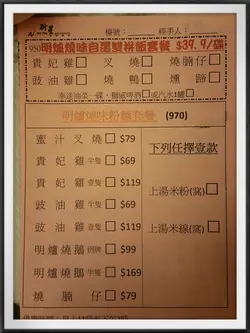 樓號: 經手人:
950明爐燒味自選雙拼飯套餐 $39.9/碟
貴妃雞□ 叉燒□ 燒腩仔□
豉油雞□ 燒鴨□ 燻蹄□
奉送油菜一碟,
或汽水1罐
明爐燒味粉麵套餐 (970)
蜜汁叉燒□ $79
貴妃雞半隻□ $69
貴妃雞壹隻□ $119
豉油雞半隻□ $69
豉油雞壹隻□ $119
明爐燒鵝例牌□ $99
明爐燒鵝半隻□ $169
燒腩仔□ $79
下列任擇壹款
上湯米粉(窩)□
上湯米線(窩)□